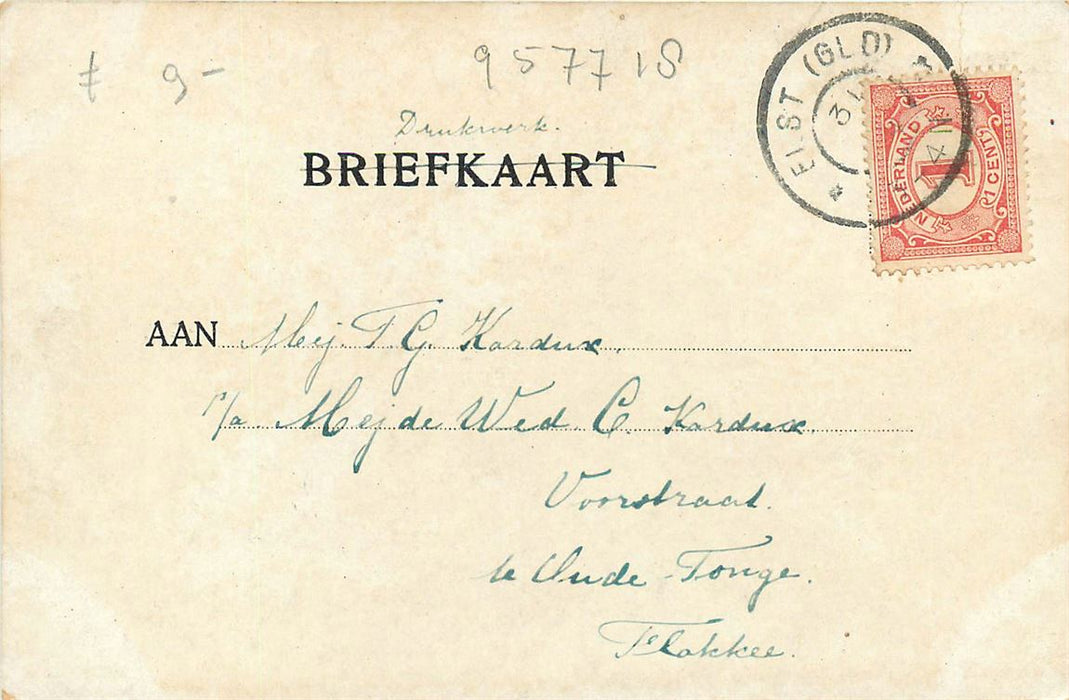 ƒ 9-
9577 18
ELST (GLD)
3
4
NEDERLAND
1
1 CENT
Drukwerk.
BRIEFKAART
AAN Mej. T. G. Kardux.
p/a Mej de Wed. C. Kardux.
Voorstraat.
te Oude-Tonge.
Flakkee.